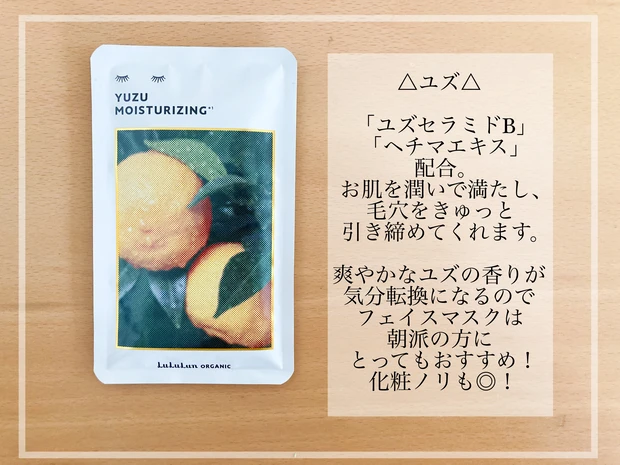 YUZU
MOISTURIZING*1
LuLuLun ORGANIC
△ユズ△
「ユズセラミドB」
「ヘチマエキス」
配合。
お肌を潤いで満たし、
毛穴をきゅっと
引き締めてくれます。
爽やかなユズの香りが
気分転換になるので
フェイスマスクは
朝派の方に
とってもおすすめ！
化粧ノリも◎！